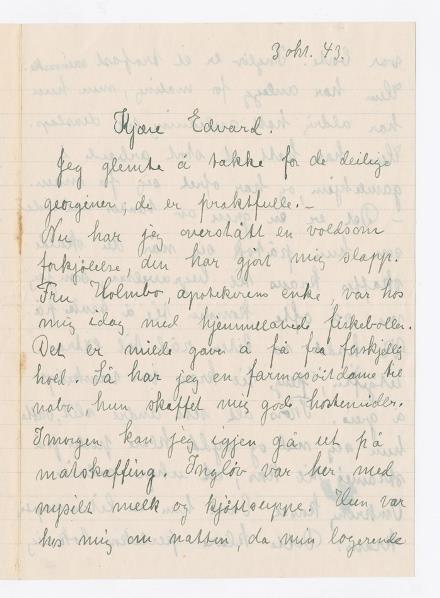 3 okt. 43.
Kjære Edvard.
Jeg glemte å takke for de deilige
georginer, de er praktfulle. –
Nu har jeg overstått en voldsom
forkjølelse, den har gjort mig slapp.
Fru Holmbo, apotekerens enke, var hos
mig idag med hjemmelavede fiskeboller.
Det er milde gaver å få fra forskjellig
hold. Så har jeg en farmasøitdame til
nabo hun skaffet mig gods hostemidler.
Imorgen kan jeg igjen gå ut på
matskaffing. Ingløv var her med
nysilt melk og kjøttsuppe. Hun var
hos mig om natten, da min logerende